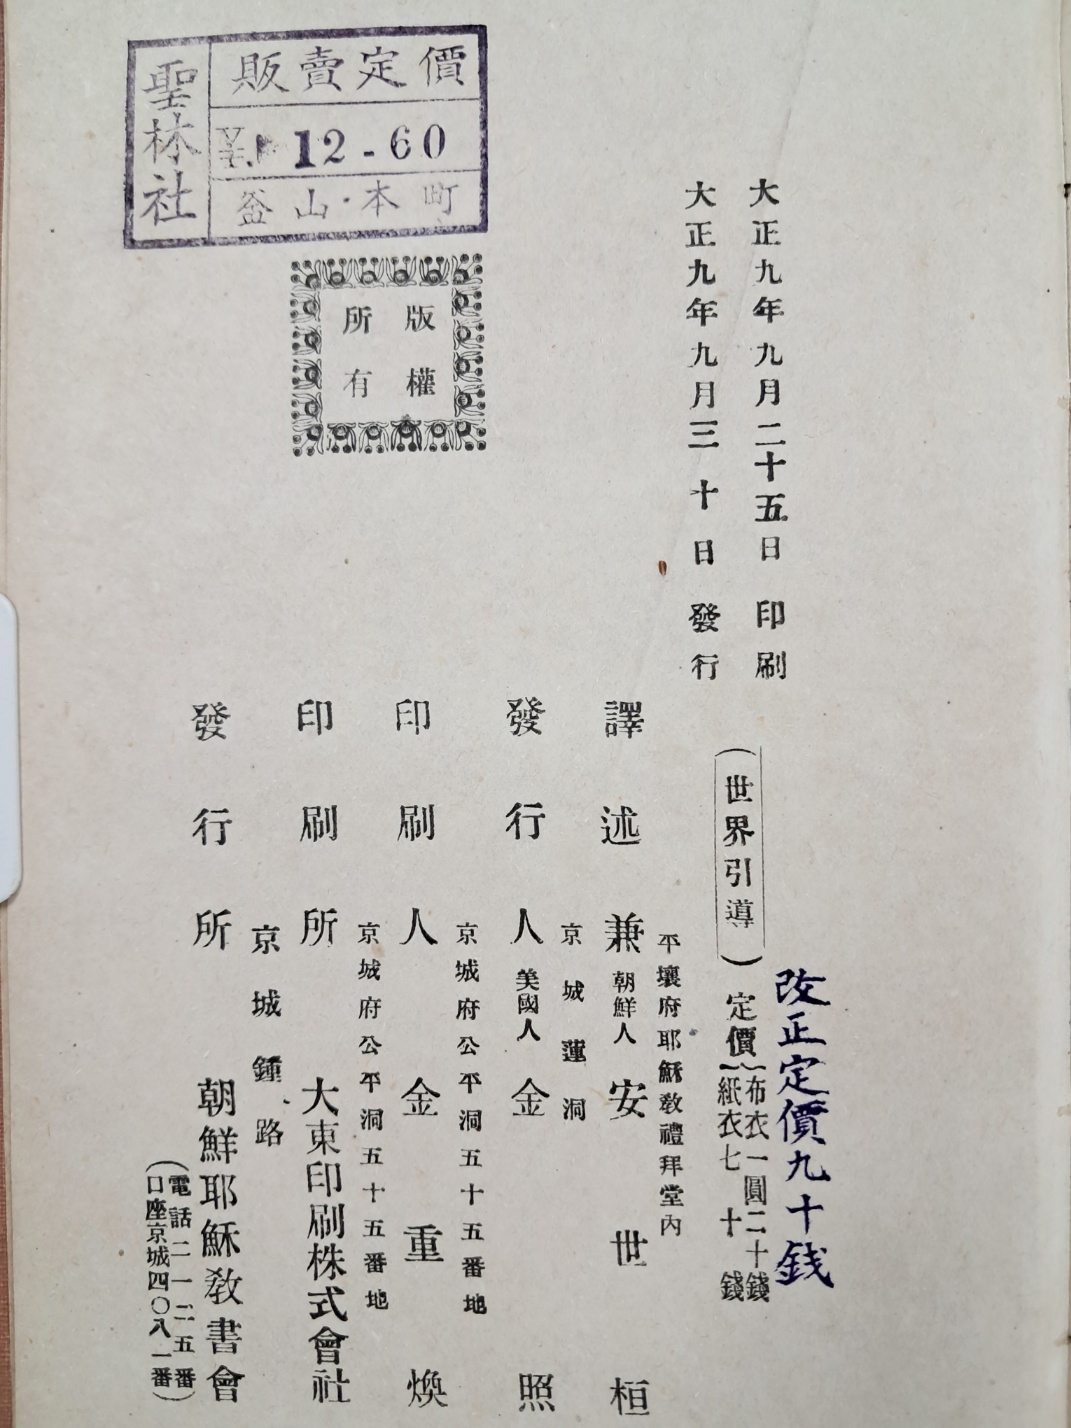 聖林社
販賣定價
12-60
釜山・本町
版權
所有
大正九年九月二十五日 印刷
大正九年九月三十日 發行
改正定價九十錢
(世界引導)
定價
布衣一圓二十錢
紙衣七十錢
平壤府耶穌敎禮拜堂內
譯述兼 朝鮮人 安世桓
京城蓮洞
發行人 美國人 金照
京城府公平洞五十五番地
印刷人 金重煥
京城府公平洞五十五番地
印刷所 大東印刷株式會社
京城鍾路
發行所 朝鮮耶穌敎書會
(電話二一二五番
口座京城四〇八一番)